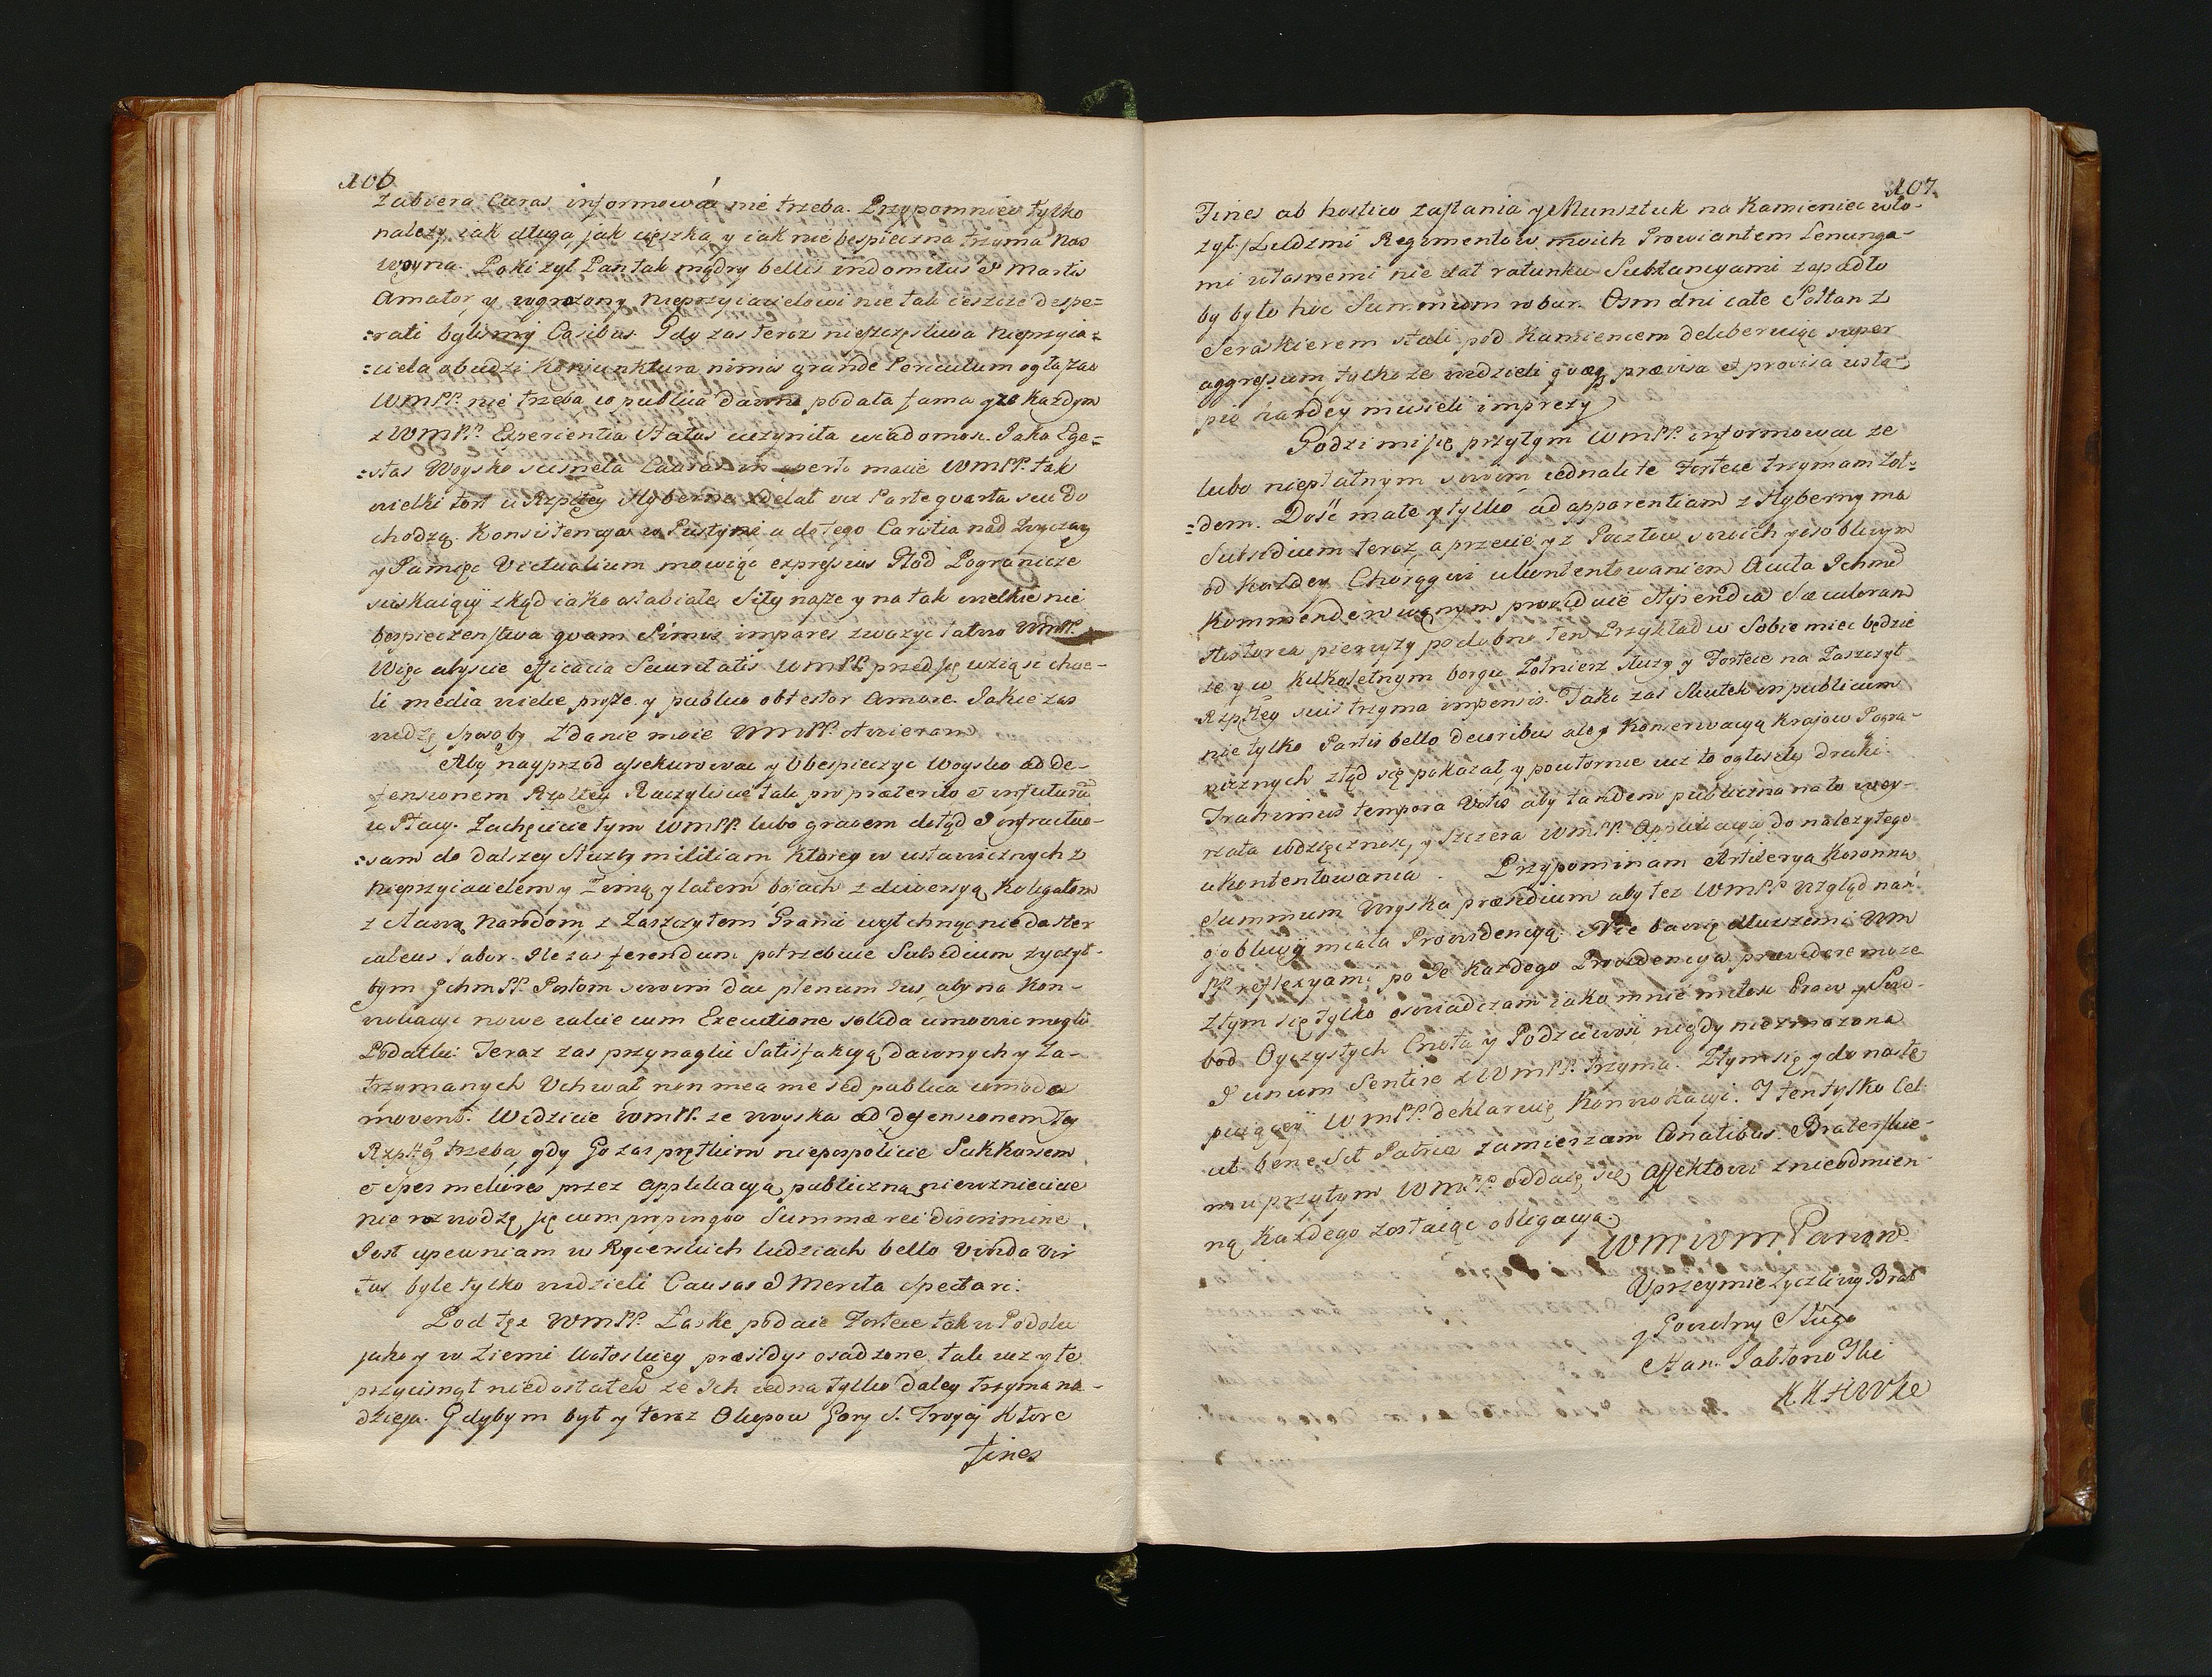 106.
zabiera Curas informować nie trzeba. Przypomniec tylko
należy, iak długa, jak cięszka, y iak niebespieczna trzyma nas
woyna. Poki żył Pan tak mądry bellis indomitus & Martis
Amator, y wgrożony nieprzyiacielowi nie tak ieszcze despe=
=rati bylismy Casibus. Gdy zas teraz nieszczęsliwa nieprzyia=
=ciela obudzi koniunktura, nimis grande Periculum ogłaszac
WMPP. nie trzeba, co publica dawno podała fama y w każdym
z WMPP. Experientia Status uczyniła wiadomosc. Jaka Ege=
=stas Woysko scisnęła Causas in aperto macie WMPP. tak
wielki tort u Rzpltey Hyberna zdelat vix Parte quarta seu do
chodzą. Konsistencya w Pustyni, a do tego Caristia nad zwyczay
y Pamięc Victualium mowiąc expressius Głod Pogranicze
sciskaiący zkąd iako osłabiałe Siły nasze y na tak wielkie nie
bespieczenstwa quam Simus impares zwazyc łatwo WMPP.
Więc abyscie efficacia Securitatis WMPP. przed się wziąsc chcie-
li media wielce proszę y publico obtestor Amore. Jakie zas
widzę sposoby Zdanie moie WMPP. otwieram.
Aby nayprzod assekurowac y Ubespieczyc Woysko ad de-
fensionem Rzpltey Raczyliscie tak pro præterito & in futurũ
iẽ Płacy. Zachęcicie tym WMPP. lubo gravem dotąd & infructuo-
=sam do dalszey Służby militiam, ktorey w ustawicznych z
nieprzyiacielem y Zimą y latem boiach z diwersyą Kollegatom
z sławą Narodom, z Zaszczytem Granic wytchnąc nie da Her
culeus labor. Ile zas ferendum potrzebuie Subsidium życzył-
bym Jchm PP. Posłom swoim dac plenum Ius, aby na Kon-
wokacyi nowe calcie cum Executione solida umowic mogli
Podatki: Teraz zas przynaglic Satisfakcyą dawnych y Za-
trzymanych Uchwał non mea me sed publica comoda
movent. Widzicie WMPP. ze woyska ad defensionem tey
Rzpltey trzeba, gdy Go zas prętkim niepospolicie Sukkursem
& Spes meliores przez applikacyą publiczną niewzniecicie
nie rozwodzę się cum propinquo Summæ rei discrimine.
Jest upewniam w Rycerskich ludziach bello vivida vir
tus byle tylko widzieli Causas & Merita spectari.
Pod tęż WMPP. Łaskę podaię Fortece tak w Podolu
jako y w Ziemi Wołoskiey præsidys osadzone, tak wzyłe
przycisnął niedostatek ze Ich iedna tylko daley trzyma na-
dzieja. Gdybym był y teraz Okopow Gory S. Troycy Ktore
fines
107
Fines ab hostico zasłania y Munsztuk na Kamieniec wło-
żył, Ludzmi Regimentow moich Prowiantem Lenunga-
mi własnemi nie dał ratunku Substancyami zapadło
by było hoc Summum robur. Osm dni całe Sołtan z
Seraskierem stali pod Kamiencem deliberuiąc super
aggressum, tylko ze widzieli quæq prævisa et provisa ustą-
pic hardey musieli imprezy.
Godzi mi się przytym WMPP. informowac ze
lubo niepłatnym swoim iednak te Fortece trzymam Żoł=
=dem. Dość małe y tylko ad apparentiam z Hyberny ma
Subsidium teraz, a przecię y z Pocztow swoich y osobliwym
od kazdey Chorągwi ukontentowaniem Aucta Ichmć
Kommenderowanym prowiduię stipendia Sæculorum
Historia pierwszy podobno ten Przykład w Sobie miec będzie
ze y w kilkoletnym borgu żołnierz służy y Fortece na Zaszczyt
Rzpltey suis trzyma impensis. Jaki zas Skutek in publicum
nie tylko Partis bello decoribus ale y konserwacyą kraiow Pogra-
nicznych ztąd się pokazał, y powtornie vix to ogłosiły druki.
Trahimus tempora Votis aby tandem publiczna na to wey-
rzała wdzięcznosc, y Szczera WMPP. Applikacya do należytego
ukontentowania. Przypominam Artilerya Koronna
Summum Woyska præsidium aby tez WMPP wzgląd nań
osobliwy miała Prowidencyą. Nie bawię dłuższemi WM
PP. reflexyami, po Ie każdego Providencya prævidere może
Z tym się tylko oswiadczam iako mnie miłosc Praw y Swo-
bod Oyczystych Cnota y Podzciwość nigdy niezmazona
I unum Sentire z WMPP. trzyma. Z tym się y do nastę
puiącey WMPP. deklaruię Konwokacyi. I ten tylko Cel
ut bene Sit Patriæ zamierzam Conatibus. Braterskie-
mu przytym WMPP. oddaię się Affektowi z nieodmien
ną każdego zostaiąc obligacyą
WM WM Panow
Uprzeymie życzliwy Brat
y Powolny Sługa
Stan. Jabłonowski
KKHWKo